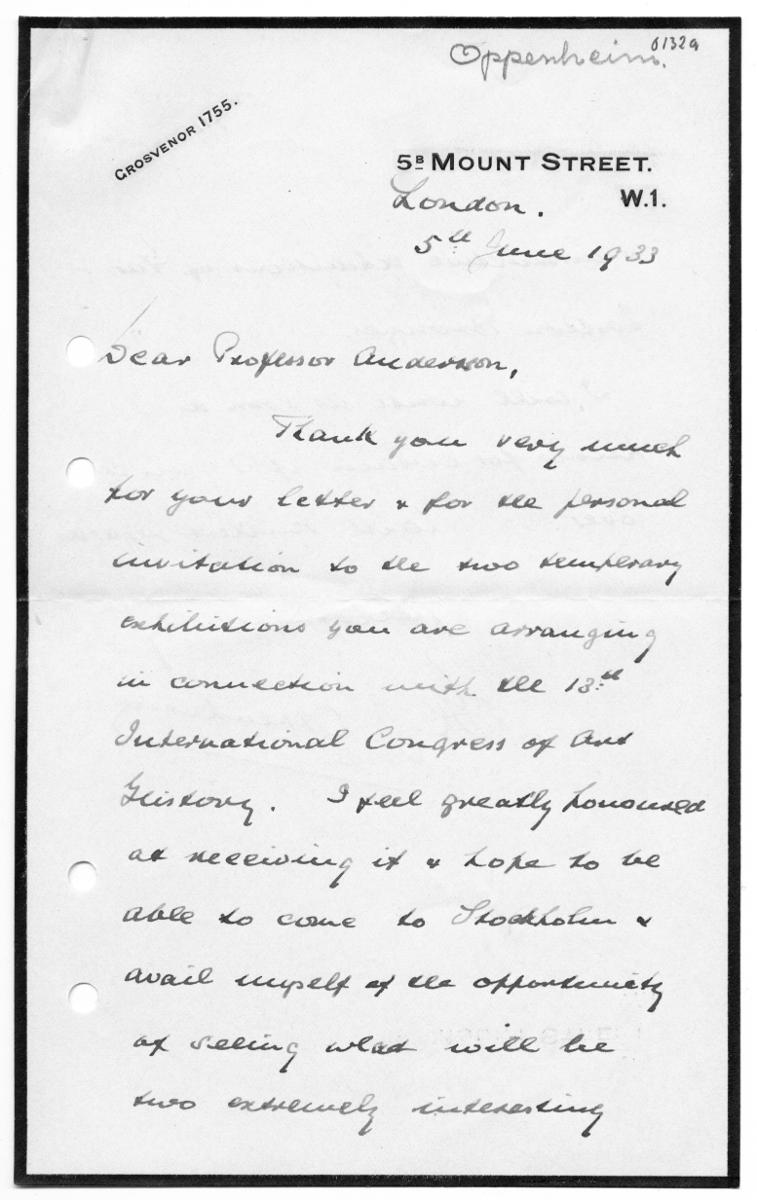 Oppenheim.
0132a
GROSVENOR 1755.
5B MOUNT STREET.
London. W.1.
5th June 1933
Dear Professor Andersson,
Thank you very much
for your letter & for the personal
invitation to the two temporary
exhibitions you are arranging
in connection with the 13th
International Congress of Art
History. I feel greatly honoured
at receiving it & hope to be
able to come to Stockholm &
avail myself of the opportunity
of seeing what will be
two extremely interesting